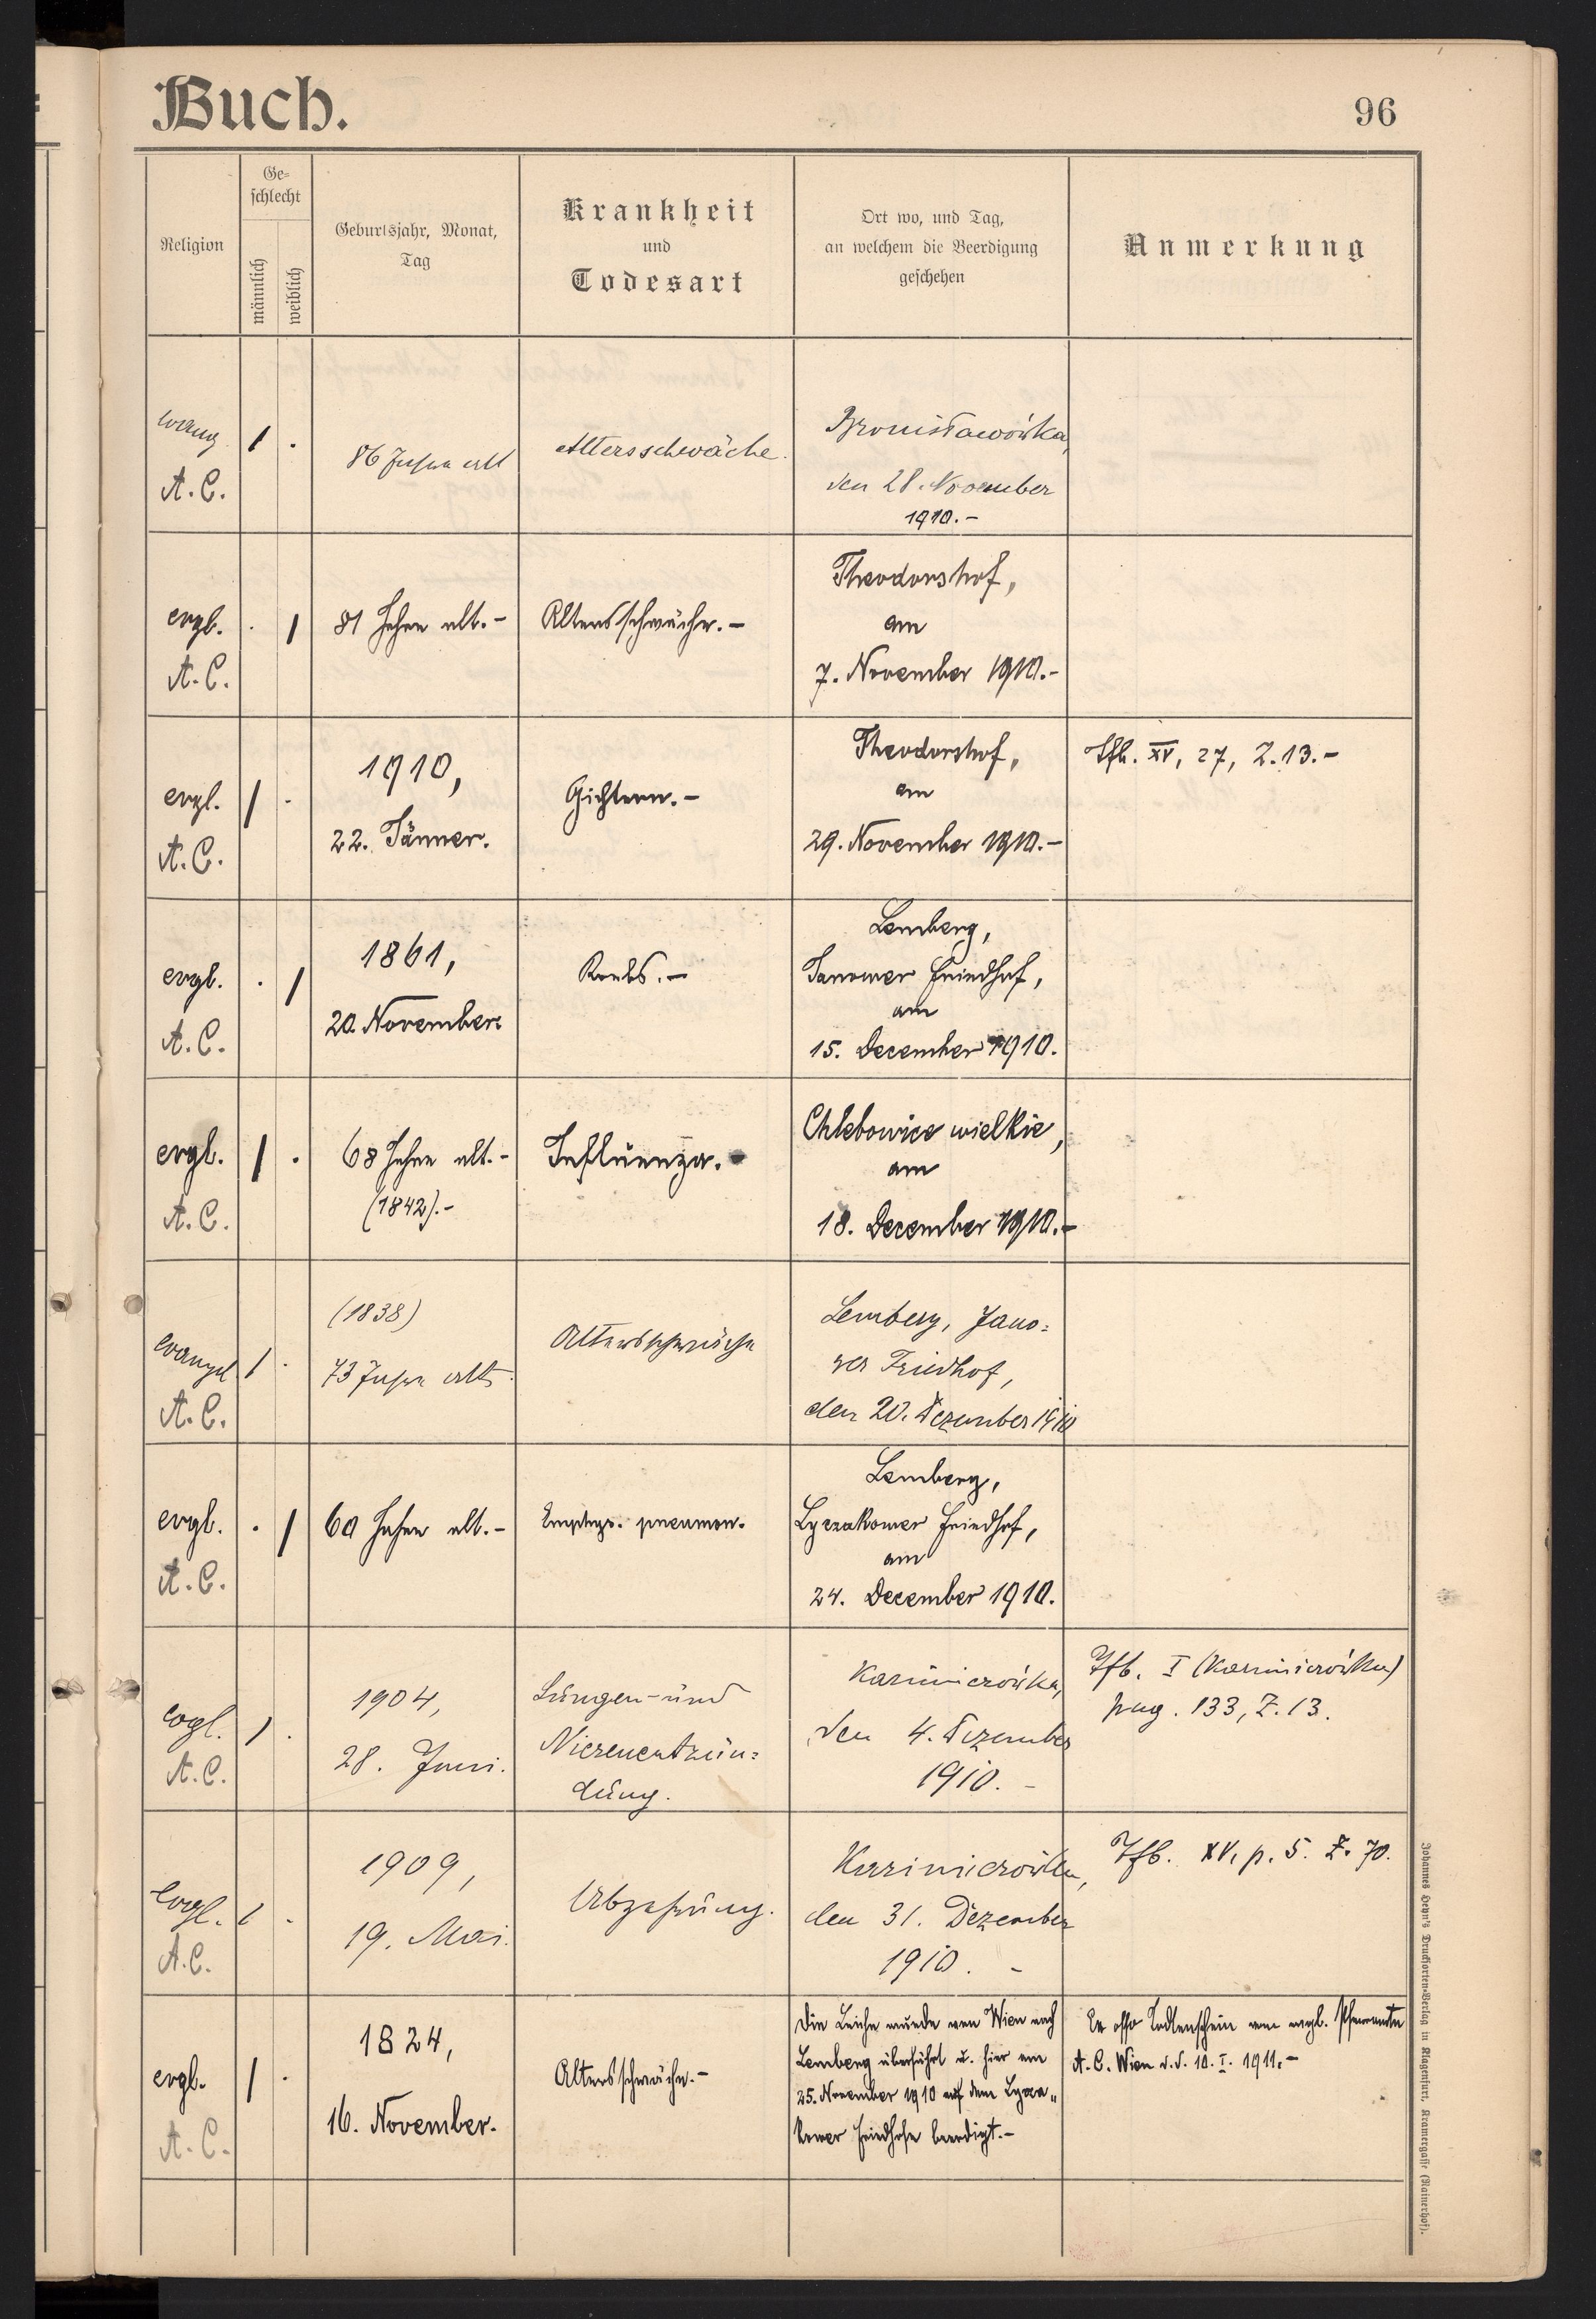 Buch.
96
Religion
Ge=
schlecht
männlich
weiblich
Geburtsjahr, Monat,
Tag
Krankheit
und
Todesart
Ort wo, und Tag,
an welchem die Beerdigung
geschehen
Anmerkung
evang.
A. C.
1 .
86 Jahre alt
Altersschwäche.
Bronisławówka,
den 28. November
1910.-
evgl.
A. C.
. 1
81 Jahre alt.-
Altersschwäche.-
Theodorshof,
am
7. November 1910.-
evgl.
A. C.
1 .
1910,
22. Jänner.
Gichtern.-
Theodorshof,
am
29. November 1910.-
Tfb. XV, 27, Z. 13.-
evgl.
A. C.
. 1
1861,
20. November.
Krebs.-
Lemberg,
Janower Friedhof,
am
15. December 1910.
evgl.
A. C.
1 .
68 Jahre alt.-
(1842).-
Influenza.
Chlebowice wielkie,
am
18. December 1910.-
evangel.
A. C.
1 .
(1838)
73 Jahre alt.
Altersschwäche
Lemberg, Jano=
wer Friedhof,
den 20. Dezember 1910
evgl.
A. C.
. 1
60 Jahre alt.-
Emphys. pneumon.
Lemberg,
Lyczakower Friedhof,
am
24. December 1910.
evgl.
A. C.
1 .
1904,
28. Juni.
Lungen- und
Nierenentzün=
dung.
Kazimierówka,
den 4. Dezember
1910. -
Tfb. I (Kazimierówka)
pag. 133, Z. 13.
evgl.
A. C.
1 .
1909,
19. Mai.
Abzehrung.
Kazimierówka,
den 31. Dezember
1910. -
Tfb. XV, p. 5. Z. 70.
evgl.
A. C.
1 .
1824,
16. November.
Altersschwäche.-
Die Leiche wurde von Wien nach
Lemberg überführt u. hier am
25. November 1910 auf dem Lycza=
kower Friedhofe beerdigt.-
Ex offo Todtenschein vom evgl. Pfarramte
A. C. Wien d.d. 10. I. 1911.-
Johannes Heyn's Drucksorten-Verlag in Klagenfurt, Kramergasse (Rainerhof).